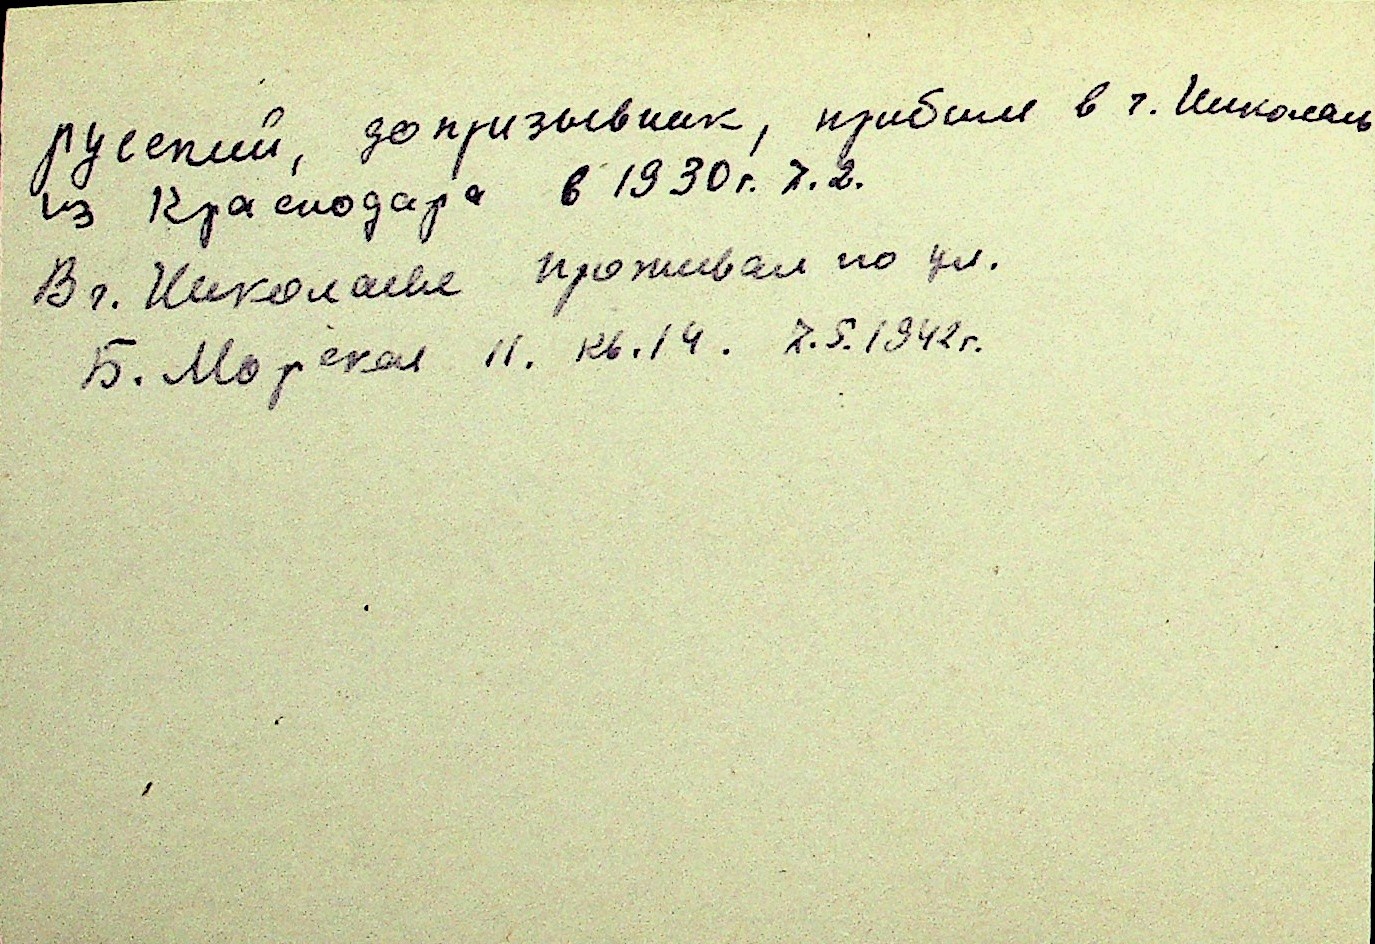 русский, допризывник, прибыл в г. Николаев
из Краснодара в 1930г. 7.2.
В г. Николаеве проживал по ул.
Б. Морская 11. кв. 14. 7.5.1942г.